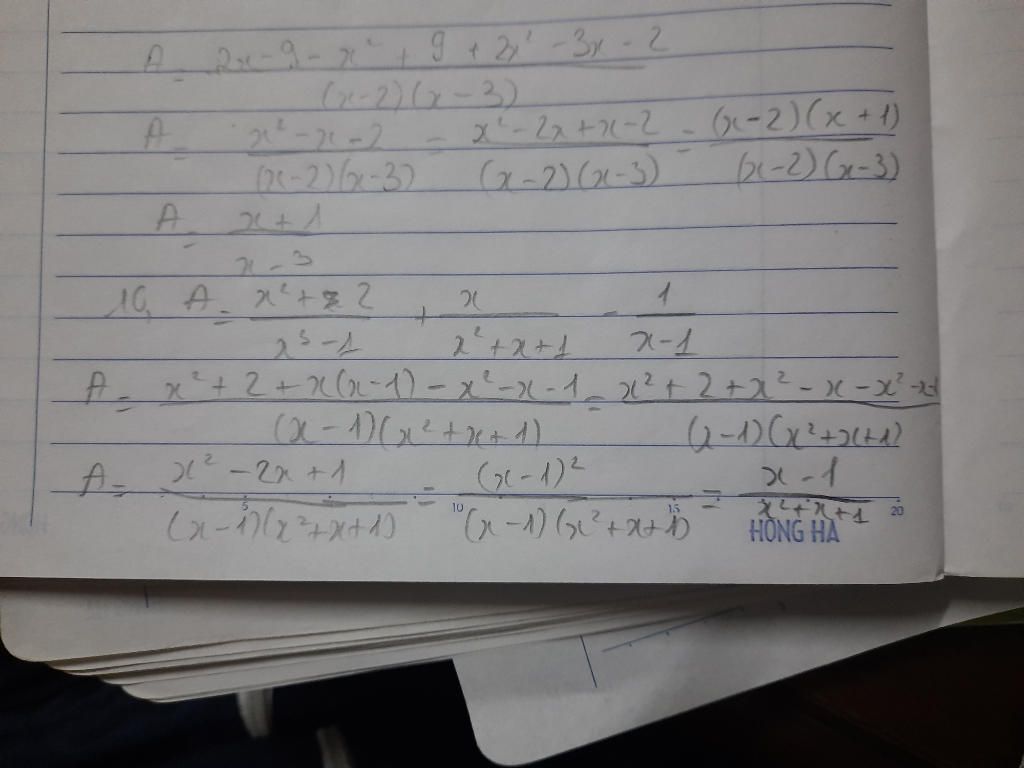 A = 2x - 9 - x² + 9 + 2x² - 3x - 2 / (x-2)(x-3)
A = x² - x - 2 / (x-2)(x-3) = x² - 2x + x - 2 / (x-2)(x-3) = (x-2)(x+1) / (x-2)(x-3)
A = x + 1 / x - 3
10, A = x² + 2 / x³ - 1 + x / x² + x + 1 - 1 / x - 1
A = x² + 2 + x(x-1) - x² - x - 1 / (x-1)(x²+x+1) = x² + 2 + x² - x - x² - x - 1 / (x-1)(x²+x+1)
A = x² - 2x + 1 / (x-1)(x²+x+1) = (x-1)² / (x-1)(x²+x+1) = x - 1 / x² + x + 1
5 10 15 20
HONG HA